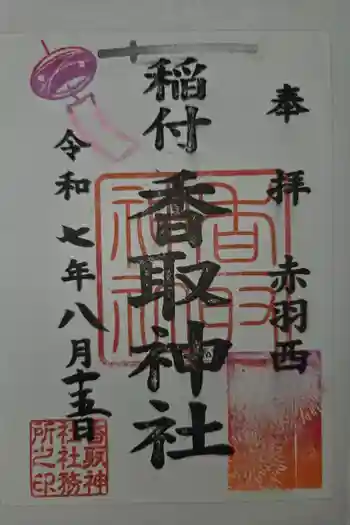 奉拝 赤羽西
稲付
香取神社
令和七年八月十五日
香取神社
香取神
社社務
所之印